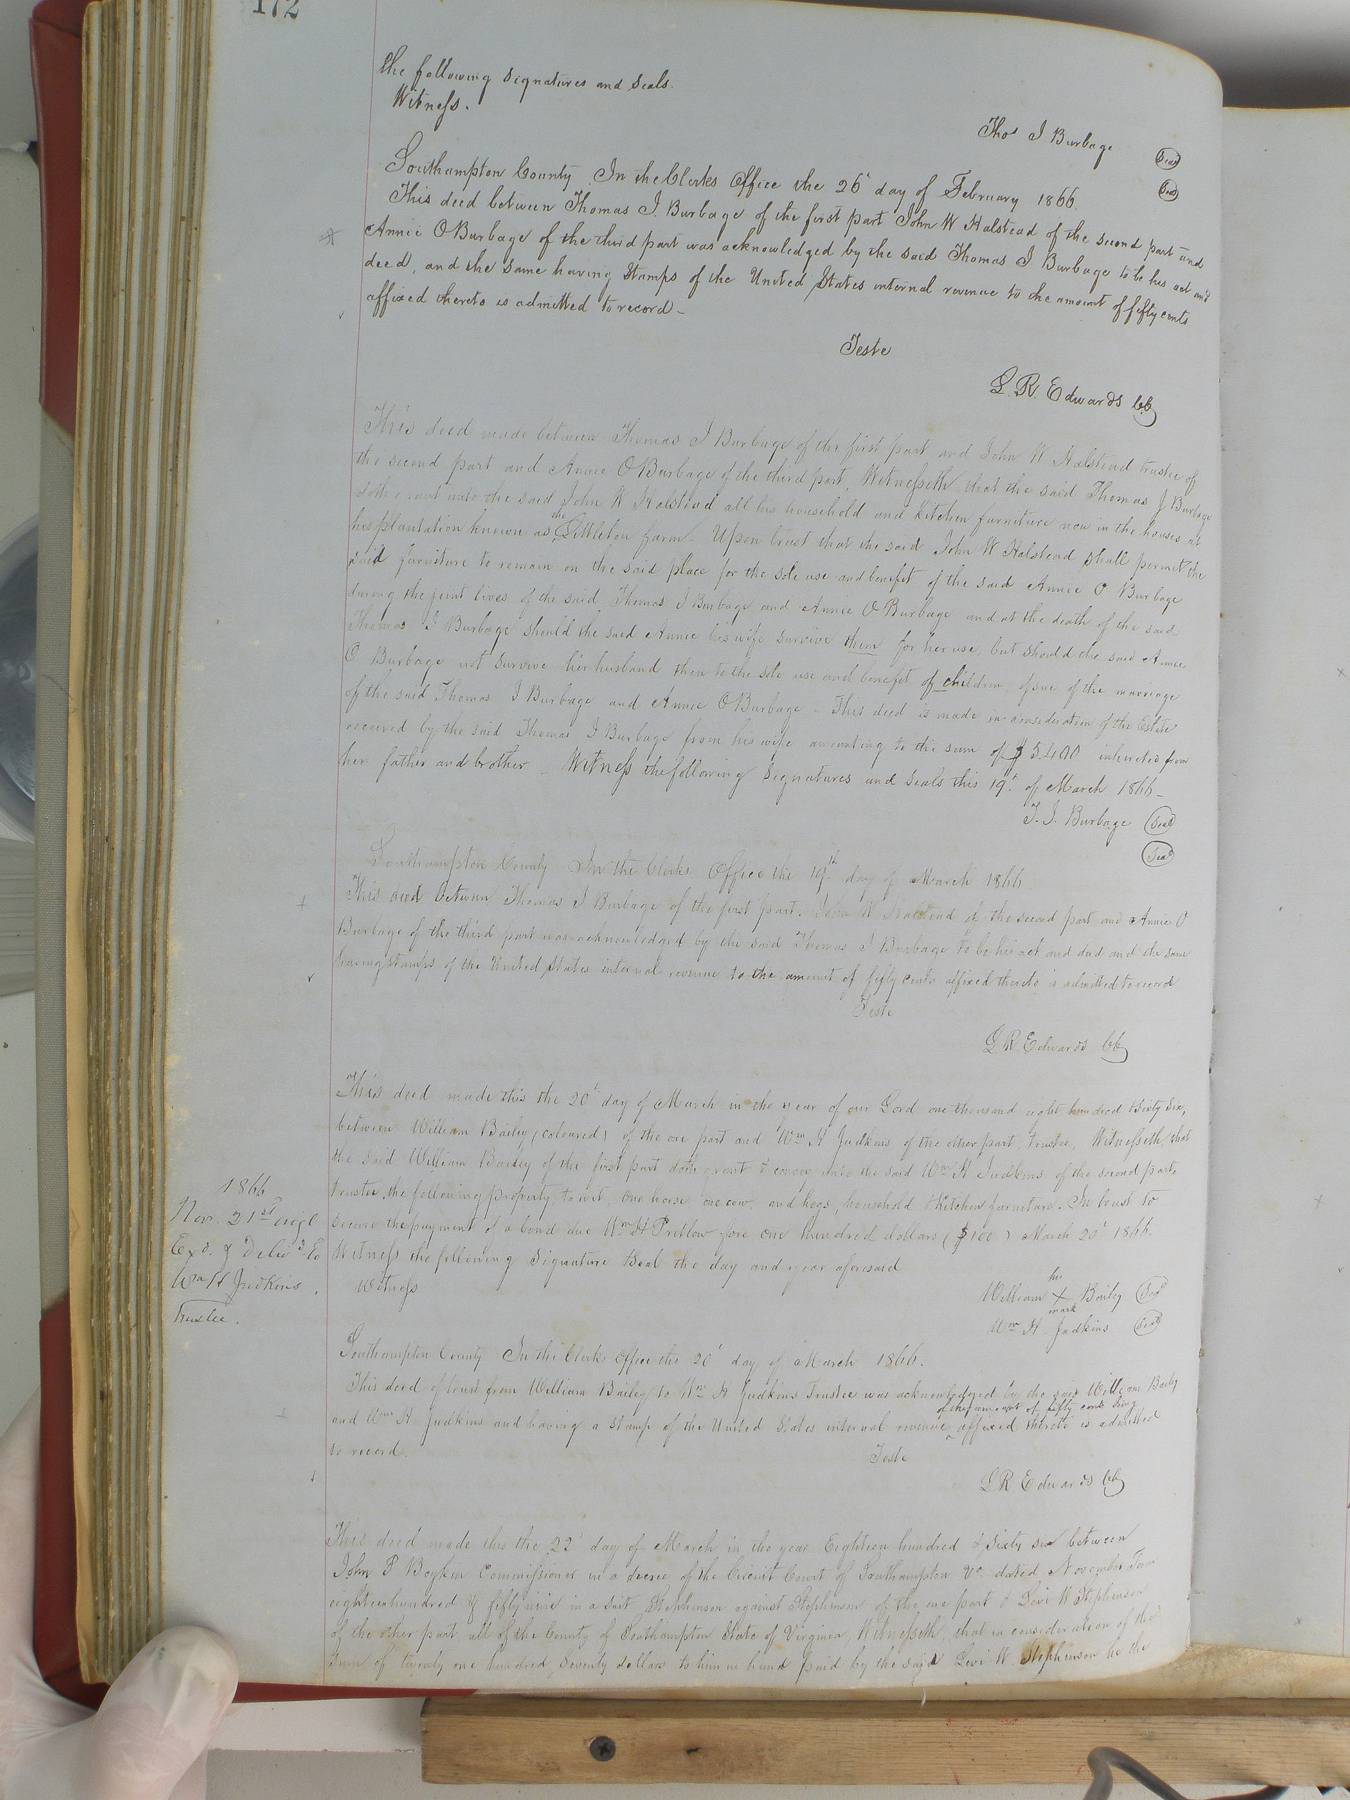 172
the following signatures and seals.
Witness.
Thos J Burbage Seal
Seal
Southampton County In the Clerks Office the 26' day of February 1866.
This deed between Thomas J. Burbage of the first part John W Halstead of the second part and
Annie O Burbage of the third part was acknowledged by the said Thomas J Burbage to be his act and
deed, and the same having stamps of the United States internal revenue to the amount of fifty cents
affixed thereto is admitted to record-
Teste
L. R. Edwards CC
This deed made between Thomas J Burbage of the first part and John W Halstead trustee of
the second part and Annie O Burbage of the third part, Witnesseth that the said Thomas J Burbage
doth grant unto the said John W Halstead all his household and kitchen furniture now in the houses at
his plantation known as the Littleton farm. Upon trust that the said John W Halstead shall permit the
said furniture to remain on the said place for the sole use and benefit of the said Annie O Burbage
during the joint lives of the said Thomas J Burbage and Annie O Burbage and at the death of the said
Thomas J Burbage should the said Annie his wife survive them for her use, but should the said Annie
O Burbage not survive her husband then to the sole use and benefit of children, of the marriage
of the said Thomas J Burbage and Annie O Burbage - This deed is made in consideration of the Estate
received by the said Thomas J Burbage from his wife amounting to the sum of $5400 inherited from
her father and brother - Witness the following signatures and seals this 19' of March 1866-
T. J. Burbage Seal
Seal
Southampton County In the Clerks Office the 19th day of March 1866
This deed between Thomas J Burbage of the first part. John W Halstead of the second part and Annie O
Burbage of the third part was acknowledged by the said Thomas J Burbage to be his act and deed and the same
having stamps of the United States internal revenue to the amount of fifty cents affixed thereto is admitted to record
Teste
L R Edwards CC
This deed made this the 20' day of March in the year of our Lord one thousand eight hundred & sixty six,
between William Bailey (coloured) of the one part and Wm H Judkins of the other part, trustee, Witnesseth, that
the said William Bailey of the first part doth grant & convey unto the said Wm H Judkins of the second part,
trustee, the following property, to wit, one horse, one cow, and hogs, household & kitchen furniture. In trust to
secure the payment of a bond due Wm H Pretlow for one hundred dollars ($100) March 20' 1866.
Witness the following signature & seal the day and year aforesaid
Witness
his
William X Bailey Seal
mark
Wm H Judkins Seal
1866
Nov. 21st
Exd. & Delivd to
Wm H Judkins,
Trustee.
Southampton County In the Clerks Office the 20' day of March 1866.
This deed of trust from William Bailey to Wm H Judkins Trustee was acknowledged by the said William Bailey
of the amount of fifty cents being
and Wm H Judkins and having a stamp of the United States internal revenue affixed thereto is admitted
to record.
Teste
L R Edwards CC
This deed made this the 22' day of March in the year Eighteen hundred & sixty six between
John P Boykin Commissioner in a decree of the Circuit Court of Southampton Va dated November Term
eighteen hundred & fifty nine in a suit Stephenson against Stephenson of the one part & Levi W Stephenson
of the other part all of the County of Southampton State of Virginia, Witnesseth, that in consideration of the
sum of twenty one hundred & seventy dollars to him in hand paid by the said Levi W Stephenson he the